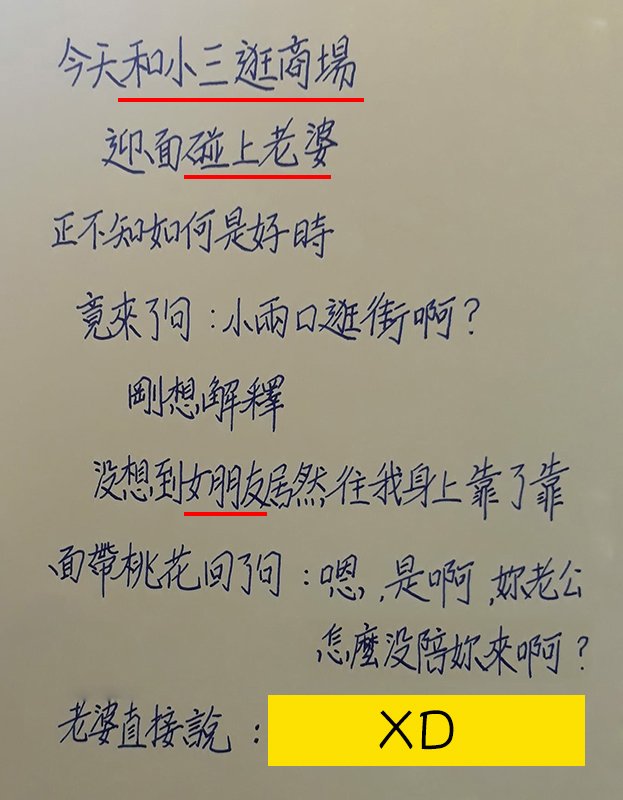 今天和小三逛商場
迎面碰上老婆
正不知如何是好時
竟來了句：小兩口逛街啊？
剛想解釋
没想到女朋友居然往我身上靠了靠
面帶桃花回了句：嗯，是啊，妳老公
怎麼没陪妳來啊？
老婆直接說：XD